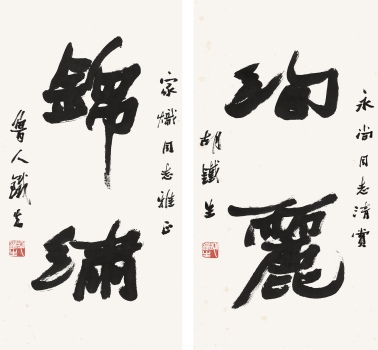 家熾同志雅正
錦繡
魯人鐵生
永尚同志清賞
絢麗
胡鐵生